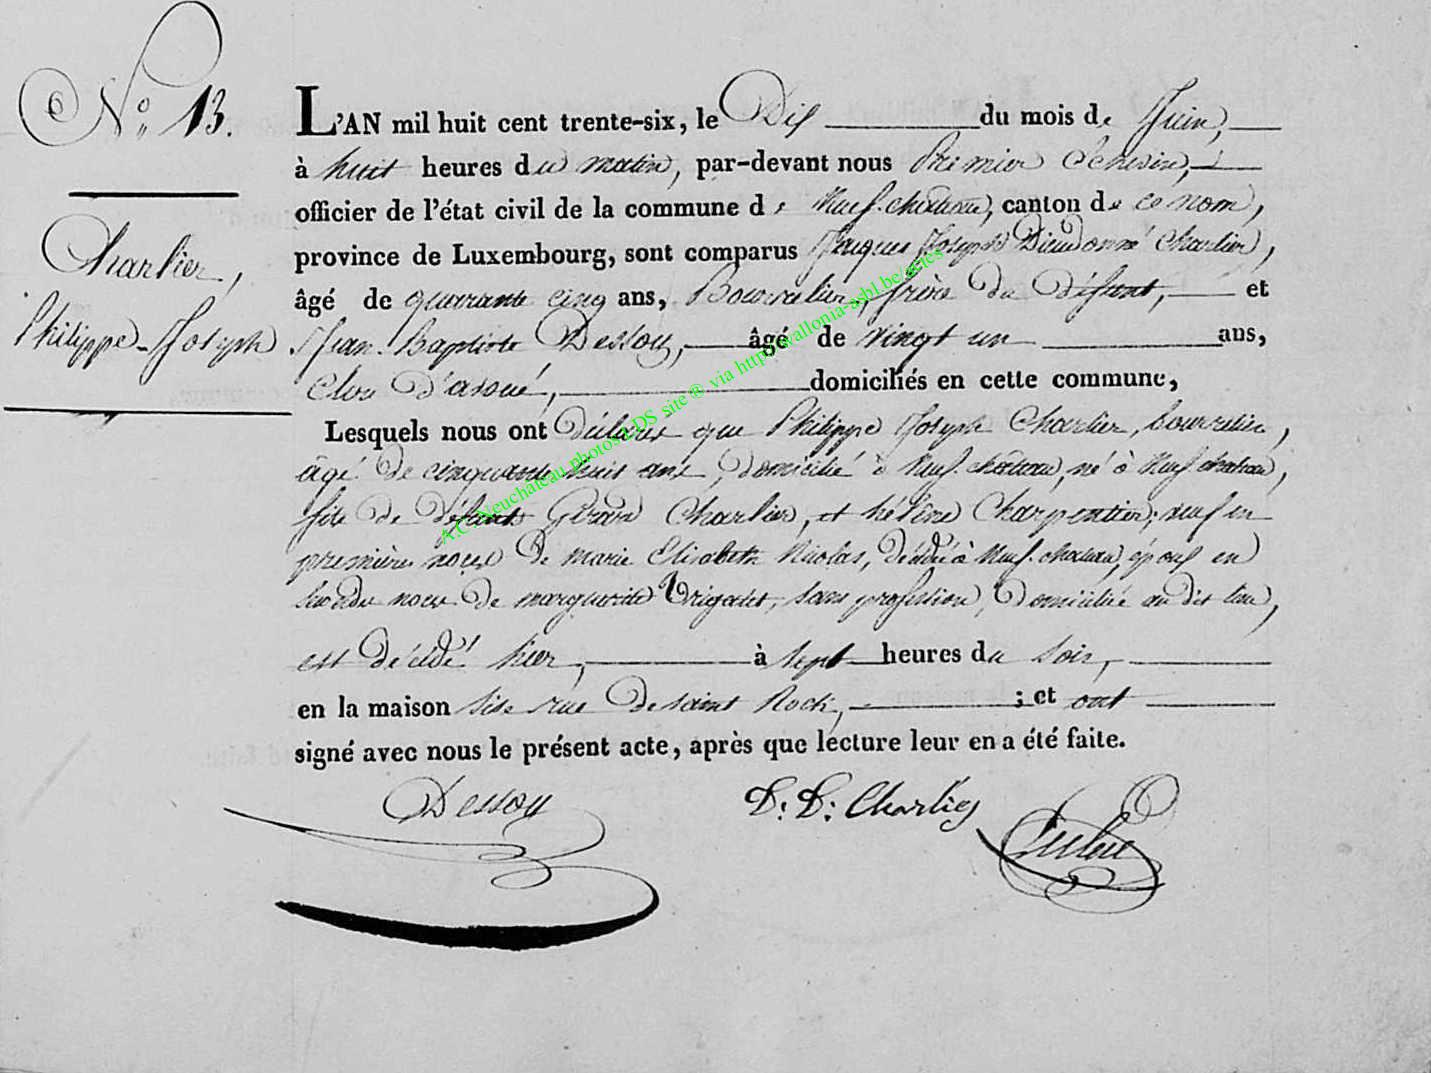 N° 13.
Charlier,
Philippe-Joseph
L'AN mil huit cent trente-six, le Dix du mois de Juin,
à huit heures du matin, par-devant nous Premier Echevin,
officier de l'état civil de la commune de Neufchateau, canton de ce nom,
province de Luxembourg, sont comparus Jacques Joseph Dieudonné Charlier,
âgé de quarante cinq ans, Bourrelier, frère du défunt, et
Jean-Baptiste Dessoy, âgé de vingt un ans,
Clerc d'avoué, domiciliés en cette commune,
Lesquels nous ont déclaré que Philippe Joseph Charlier, bourrelier,
âgé de cinquante huit ans, domicilié à Neufchâteau, né à Neufchateau,
fils de défunts Charlier, et hélène Charpentier; veuf en
premières noces de marie Elisabeth Nicolas, décédée à Neufchateau, époux en
secondes noces de marguerite sans profession, Domiciliée au dit lieu,
est décédé hier, à sept heures du soir,
en la maison sise rue de saint Roch, ; et ont
signé avec nous le présent acte, après que lecture leur en a été faite.
Dessoy
D. D. Charlier
A.C. Neuchâteau photos LDS site ® via http://wallonia-asbl.be/actes